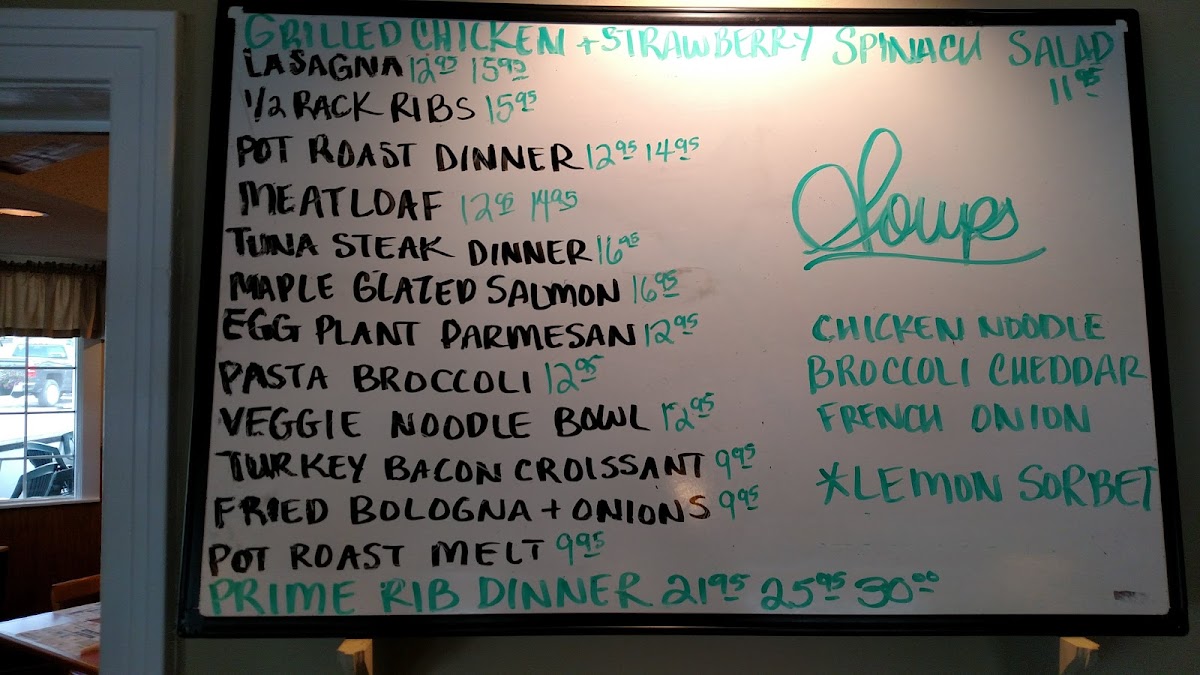 GRILLED CHICKEN + STRAWBERRY SPINACH SALAD
11.95
LASAGNA 12.95 15.95
1/2 RACK RIBS 15.95
POT ROAST DINNER 12.95 14.95
MEATLOAF 12.95 14.95
TUNA STEAK DINNER 16.95
MAPLE GLAZED SALMON 16.95
EGG PLANT PARMESAN 12.95
PASTA BROCCOLI 12.95
VEGGIE NOODLE BOWL 12.95
TURKEY BACON CROISSANT 9.95
FRIED BOLOGNA + ONIONS 9.95
POT ROAST MELT 9.95
PRIME RIB DINNER 21.95 25.95 30.00
Soups
CHICKEN NOODLE
BROCCOLI CHEDDAR
FRENCH ONION
*LEMON SORBET